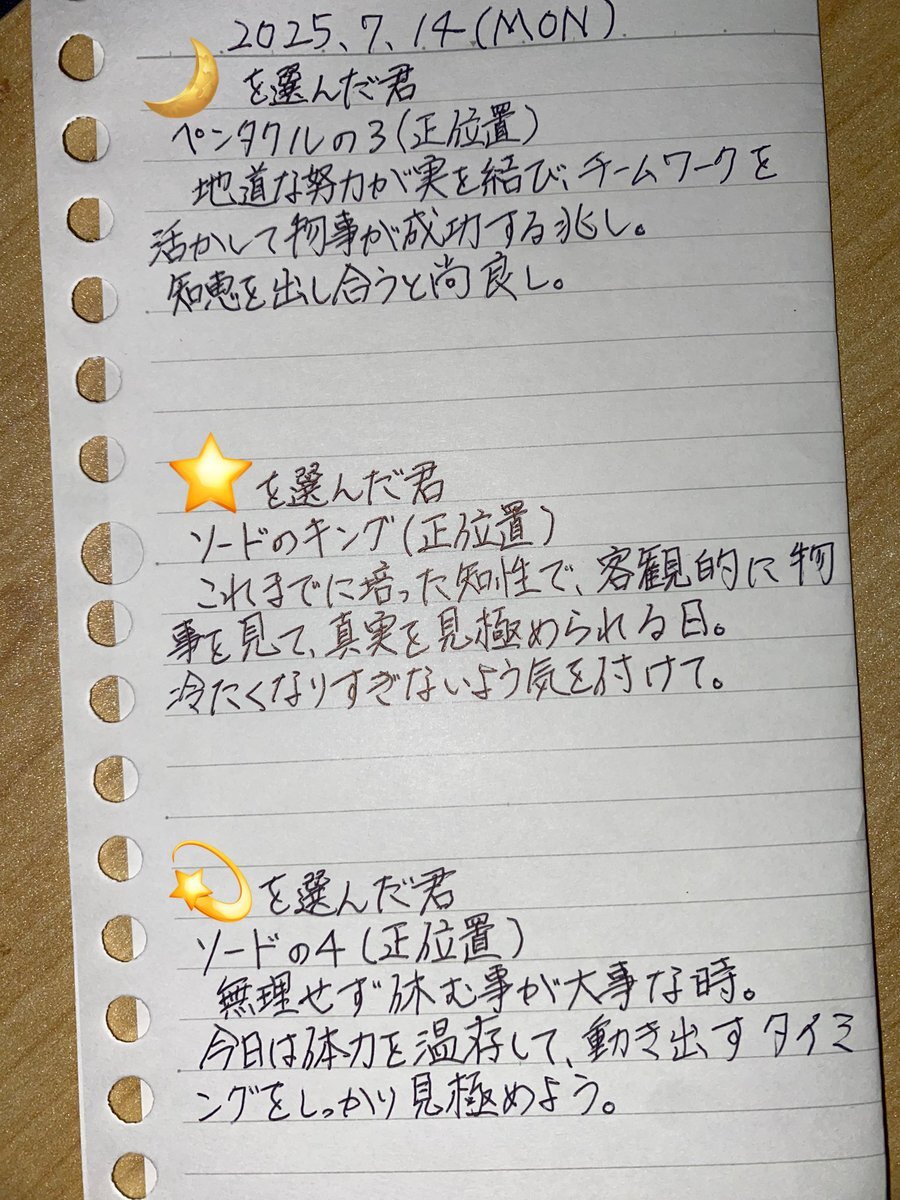 2025.7.14(MON)
🌙を選んだ君
ペンタクルの3(正位置)
地道な努力が実を結び、チームワークを
活かして物事が成功する兆し。
知恵を出し合うと尚良し。
⭐を選んだ君
ソードのキング(正位置)
これまでに培った知性で、客観的に物
事を見て、真実を見極められる日。
冷たくなりすぎないよう気を付けて。
💫を選んだ君
ソードの4(正位置)
無理せず休む事が大事な時。
今日は体力を温存して、動き出すタイミ
ングをしっかり見極めよう。